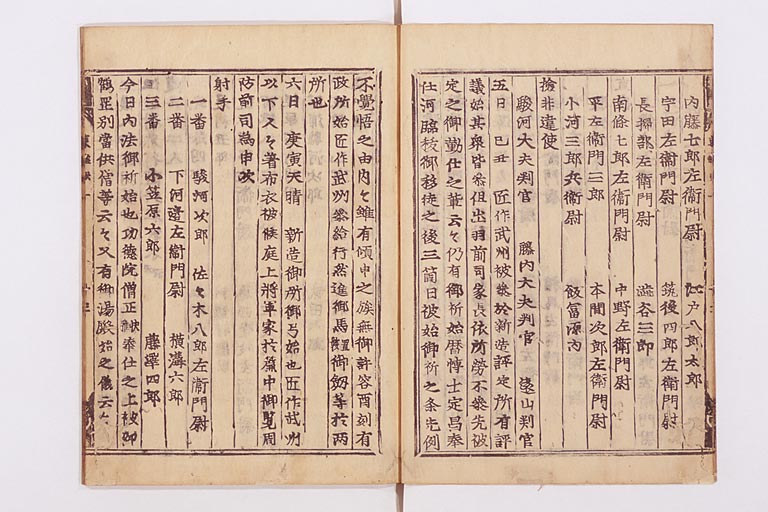 内藤七郎左衛門尉　江戸八郎太郎
宇田左衛門尉　筑後四郎左衛門尉
長掃部左衛門尉　澁谷三郎
南條七郎左衛門尉　中野左衛門尉
平左衛門三郎　本間次郎左衛門尉
小河三郎兵衛尉　飯冨源内
撿非違使
駿河大夫判官　藤内大夫判官　遠山判官
五日　己丑　匠作武州被參於新造評定所有評
議始其衆皆參但出羽前司家長依所勞不參先被
定之御勤仕之輩云々仍有御祈始暦博士定昌奉
仕河臨被御移徙之後三箇日被始御祈之条先例
不覺悟之由内々雖有傾申之族無御許容酉刻有
政所始匠作武州參給行然進御馬置御釼等於兩
所也
六日　庚寅天晴　新造御所御弓始也匠作武州
以下人々著布衣被候庭上將軍家於簾中御覽周
防前司為申次
射手
一番　駿河次郎　佐々木八郎左衛門尉
二番　下河邊左衛門尉　横溝六郎
三番　小笠原六郎　藤澤四郎
今日内法御祈始也功徳院僧正奉仕之上被仰
鶴罡別當供僧等云々又有御湯殿始之儀云々